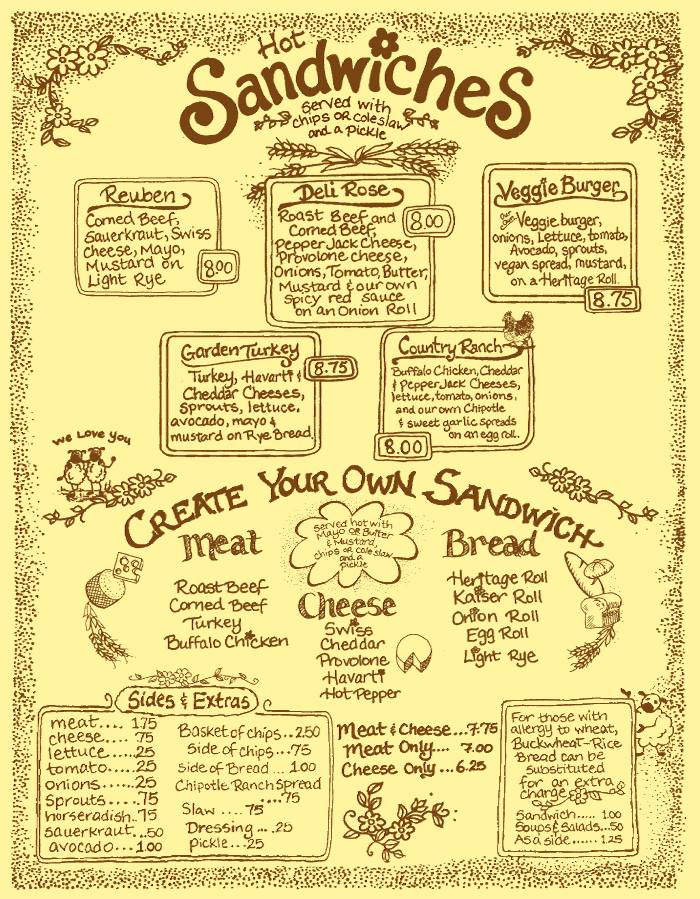 Hot
Sandwiches
served with
chips or coleslaw
and a pickle
Reuben
Corned Beef,
Sauerkraut, Swiss
Cheese, Mayo,
Mustard on
Light Rye
8.00
Deli Rose
Roast Beef and
Corned Beef,
Pepper Jack Cheese,
Provolone cheese,
Onions, Tomato, Butter,
Mustard & our own
spicy red sauce
on an Onion Roll
8.00
Veggie Burger
Our Own Veggie burger,
onions, Lettuce, tomato,
Avocado, sprouts,
vegan spread, mustard,
on a Heritage Roll.
8.75
Garden Turkey
Turkey, Havarti &
Cheddar Cheeses,
Sprouts, lettuce,
avocado, mayo &
mustard on Rye Bread
8.75
Country Ranch
Buffalo Chicken, Cheddar
& Pepper Jack Cheeses,
lettuce, tomato, onions,
and our own Chipotle
& sweet garlic spreads
on an egg roll.
8.00
We Love You
Create Your Own Sandwich
served hot with
Mayo or Butter
& Mustard,
chips or coleslaw
and a
pickle
Meat
Roast Beef
Corned Beef
Turkey
Buffalo Chicken
Cheese
Swiss
Cheddar
Provolone
Havarti
Hot Pepper
Bread
Heritage Roll
Kaiser Roll
Onion Roll
Egg Roll
Light Rye
Sides & Extras
meat.... 1.75
cheese.... 75
lettuce.....25
tomato.....25
onions.....25
Sprouts.....75
horseradish..75
sauerkraut...50
avocado...1.00
Basket of chips..2.50
side of chips...75
side of Bread... 1.00
Chipotle Ranch Spread
....75
Slaw ....75
Dressing ....25
pickle...25
Meat & Cheese...7.75
Meat Only.... 7.00
Cheese Only...6.25
For those with
allergy to wheat,
Buckwheat-Rice
Bread can be
substituted
for an extra
charge
Sandwich..... 1.00
Soups & Salads...50
As a side...... 1.25